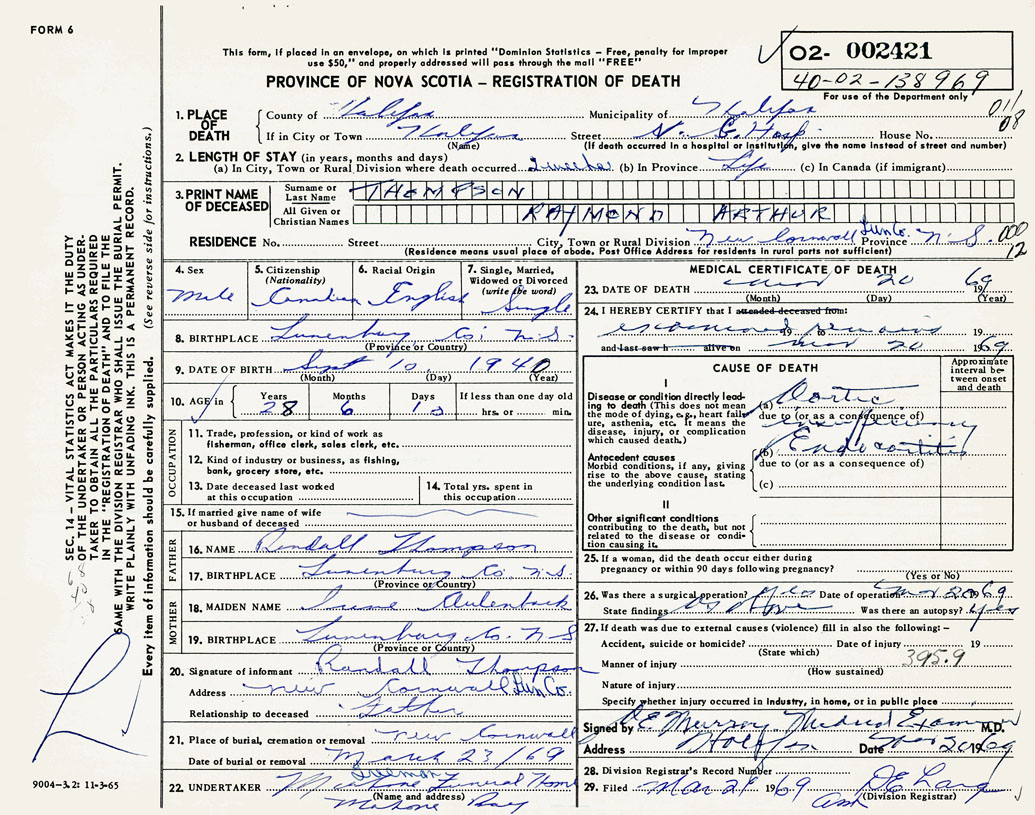 FORM 6
This form, if placed in an envelope, on which is printed "Dominion Statistics – Free, penalty for improper
use $50," and properly addressed will pass through the mail "FREE"
PROVINCE OF NOVA SCOTIA – REGISTRATION OF DEATH
02- 002421
40-02-138969
For use of the Department only
01/
08
1. PLACE OF DEATH
County of Halifax Municipality of Halifax
If in City or Town Halifax Street V. G. Hosp. House No.
(Name) (If death occurred in a hospital or institution, give the name instead of street and number)
2. LENGTH OF STAY (in years, months and days)
(a) In City, Town or Rural Division where death occurred (b) In Province Life (c) In Canada (if immigrant)
3. PRINT NAME OF DECEASED
Surname or Last Name THOMPSON
All Given or Christian Names RAYMOND ARTHUR
RESIDENCE No. Street City, Town or Rural Division New Cornwall Lun Co. Province N.S.
000
12
(Residence means usual place of abode. Post Office Address for residents in rural parts not sufficient)
4. Sex
Male
5. Citizenship
(Nationality)
Canadian
6. Racial Origin
English
7. Single, Married,
Widowed or Divorced
(write the word)
Single
8. BIRTHPLACE Lunenburg Co; N.S.
(Province or Country)
9. DATE OF BIRTH Sept 10 1940
(Month) (Day) (Year)
10. AGE in
Years
28
Months
6
Days
10
If less than one day old
hrs. or min.
OCCUPATION
11. Trade, profession, or kind of work as
fisherman, office clerk, sales clerk, etc.
12. Kind of industry or business, as fishing,
bank, grocery store, etc.
13. Date deceased last worked
at this occupation
14. Total yrs. spent in
this occupation
15. If married give name of wife
or husband of deceased
FATHER
16. NAME Randall Thompson
17. BIRTHPLACE Lunenburg Co N.S.
(Province or Country)
MOTHER
18. MAIDEN NAME Aulenback
19. BIRTHPLACE Lunenburg Co. N S
(Province or Country)
20. Signature of informant Randall Thompson
Address New Cornwall Lun Co.
Relationship to deceased Father
21. Place of burial, cremation or removal New Cornwall
Date of burial or removal March 23/69
22. UNDERTAKER Mahone Funeral Home
(Name and address)
Mahone Bay
MEDICAL CERTIFICATE OF DEATH
23. DATE OF DEATH Mar 20 1969
(Month) (Day) (Year)
24. I HEREBY CERTIFY that I attended deceased from:
examined remains 19 to 19
and last saw h alive on Mar 20 1969
CAUSE OF DEATH
Approximate interval between onset and death
I
Disease or condition directly leading to death (This does not mean the mode of dying, e.g., heart failure, asthenia, etc. It means the disease, injury, or complication which caused death.)
(a) Aortic
due to (or as a consequence of)
insufficiency
Antecedent causes
Morbid conditions, if any, giving rise to the above cause, stating the underlying condition last.
(b) Endocarditis
due to (or as a consequence of)
(c)
II
Other significant conditions
contributing to the death, but not related to the disease or condition causing it.
25. If a woman, did the death occur either during
pregnancy or within 90 days following pregnancy?
(Yes or No)
26. Was there a surgical operation? Yes Date of operation Mar 20 69
State findings As Above Was there an autopsy? Yes
27. If death was due to external causes (violence) fill in also the following: –
Accident, suicide or homicide? Date of injury 19
(State which)
Manner of injury 395.9
(How sustained)
Nature of injury
Specify whether injury occurred in industry, in home, or in public place
Signed by Medical Examiner M.D.
Address Halifax Date Mar 20 1969
28. Division Registrar's Record Number
29. Filed Mar 21 1969
(Division Registrar)
SEC. 14 – VITAL STATISTICS ACT MAKES IT THE DUTY
OF THE UNDERTAKER OR PERSON ACTING AS UNDER-
TAKER TO OBTAIN ALL THE PARTICULARS REQUIRED
IN THE "REGISTRATION OF DEATH" AND TO FILE THE
SAME WITH THE DIVISION REGISTRAR WHO SHALL ISSUE THE BURIAL PERMIT.
WRITE PLAINLY WITH UNFADING INK. THIS IS A PERMANENT RECORD.
Every item of information should be carefully supplied. (See reverse side for instructions.)
9004-3.2: 11-3-65